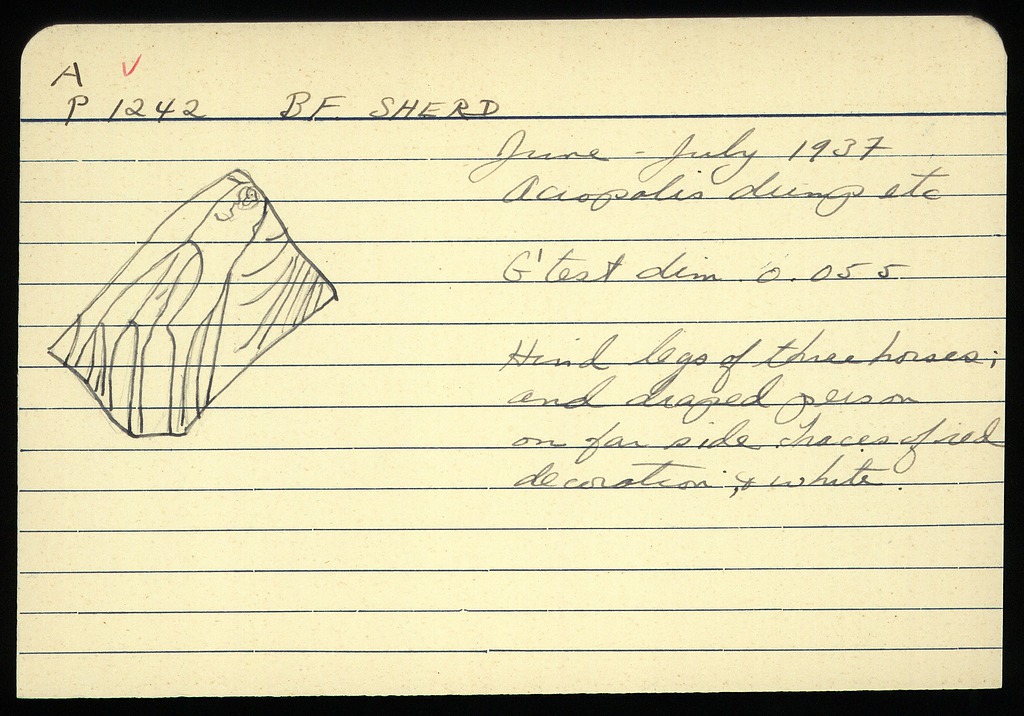 A ✓
P 1242 BF. SHERD
June - July 1937
Acropolis dump etc
G'test dim. 0.055
Hind legs of three horses;
and draped person
on far side. Traces of red
decoration; & white.